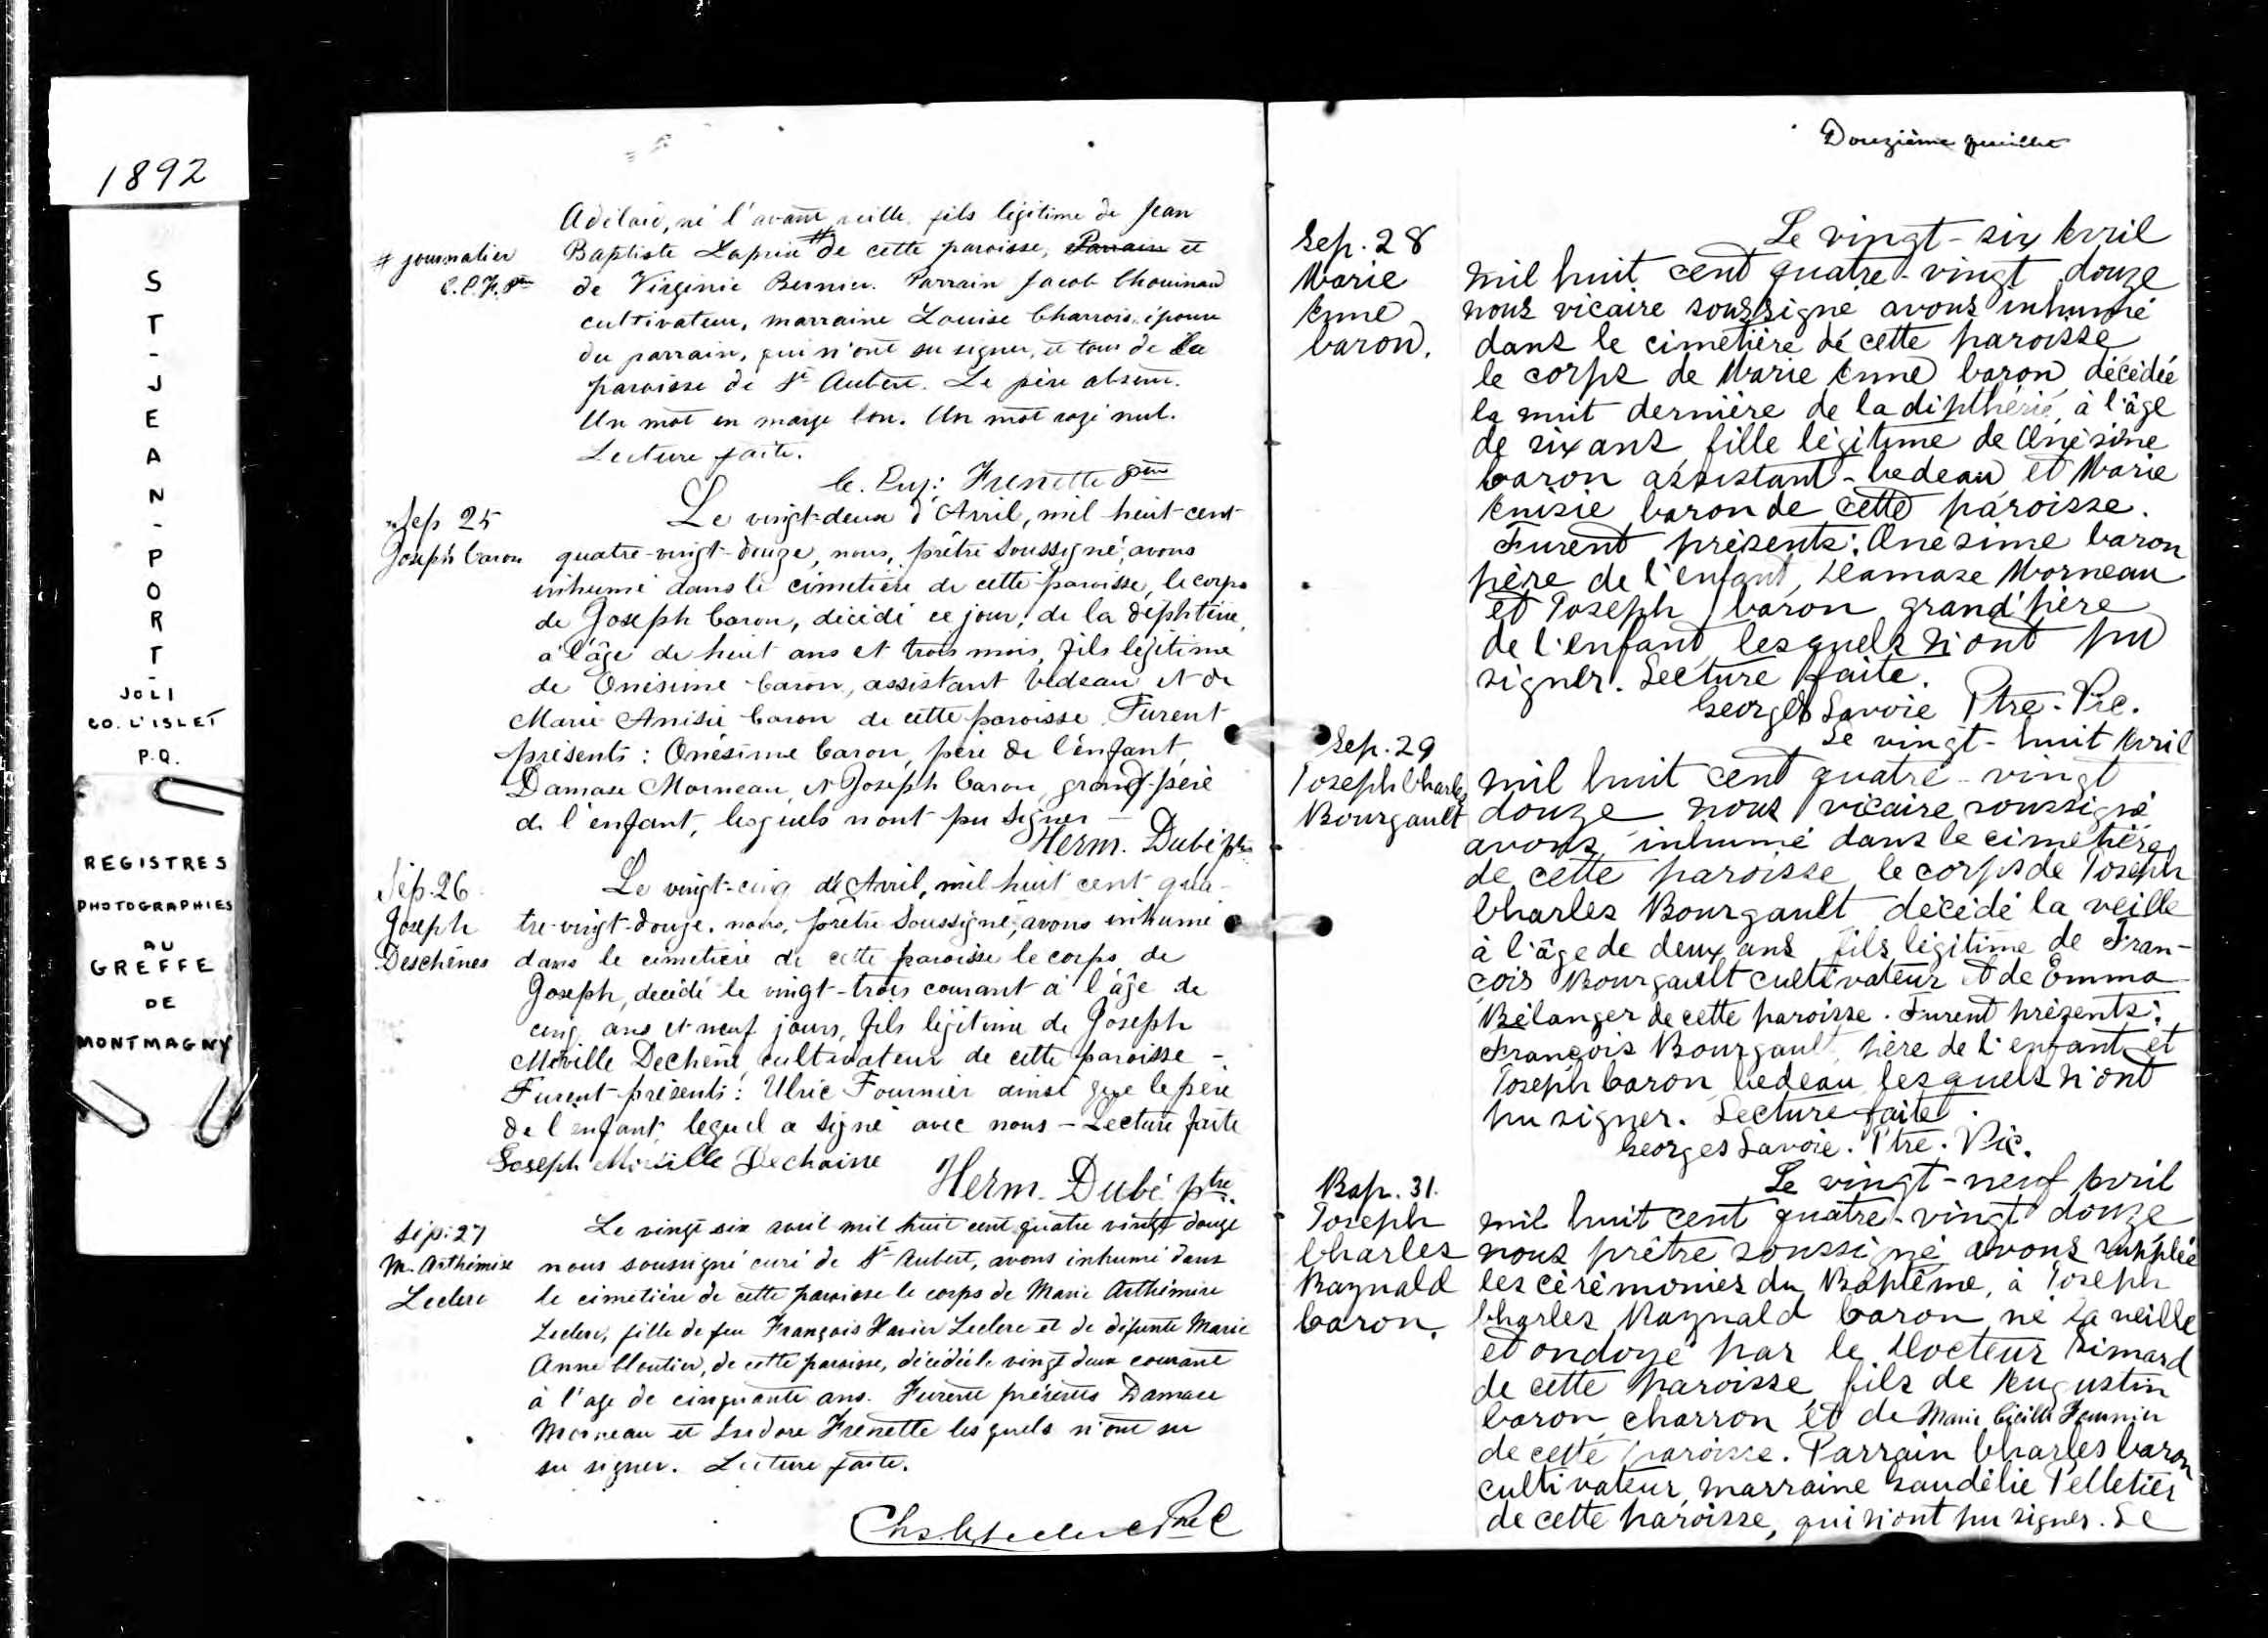 1892
ST-JEAN-PORT-
JOLI
CO. L'ISLET
P.Q.
REGISTRES
PHOTOGRAPHIES
AU
GREFFE
DE
MONTMAGNY
né l'avant veille fils légitime de Jean
# journalier
Baptiste # de cette paroisse, Parrain et
de Virginie Bernier. Parrain Jacob Chouinard
cultivateur, marraine Louise Charrois épouse
du parrain, qui n'ont su signer, et tous de la
paroisse de St Aubert. Le père absent.
Un mot en marge bon. Un mot rayé nul.
Lecture faite.
Frenette ptre
Sep 25
Joseph Caron
Le vingt-deux d'Avril, mil-huit-cent
quatre-vingt-douze, nous, prêtre soussigné, avons
inhumé dans le cimetière de cette paroisse, le corps
de Joseph Caron, décédé ce jour, de la diphtérie,
à l'âge de huit ans et trois mois, fils légitime
de Onésime Caron, assistant bédeau et de
Marie Anisie Caron de cette paroisse. Furent
présents: Onésime Caron, père de l'enfant,
Damase Morneau, et Joseph Caron, grand-père
de l'enfant, lesquels n'ont pu signer —
Herm. Dubé ptre
Sép. 26
Joseph
Deschênes
Le vingt-cinq d'Avril, mil huit cent qua-
tre-vingt-douze, nous, prêtre soussigné, avons inhumé
dans le cimetière de cette paroisse le corps de
Joseph, décédé le vingt-trois courant à l'âge de
cinq ans et neuf jours, fils légitime de Joseph
Miville Dechêne, cultivateur de cette paroisse -
Furent présents: Ulric Fournier ainsi que le père
de l'enfant, lequel a signé avec nous — Lecture faite
Joseph Miville Dechaine
Herm. Dubé ptre.
Sép: 27
M. Arthémise
Leclerc
Le vingt six avril mil huit cent quatre vingt douze
nous soussigné curé de St Aubert, avons inhumé dans
le cimetière de cette paroisse le corps de Marie Arthémise
Leclerc, fille de feu François Xavier Leclerc et de défunte Marie
Anne Cloutier, de cette paroisse, décédée le vingt deux courant
à l'age de cinquante ans. Furent présents Damase
Morneau et Isidore Frenette lesquels n'ont su
su signer. Lecture faite.
Douzième feuillet
Sep. 28
Marie
Anne
Caron.
Le vingt-six Avril
mil huit cent quatre-vingt douze
nous vicaire soussigné avons inhumé
dans le cimetière de cette paroisse
le corps de Marie Anne Caron décédée
la nuit dernière de la dipthérie, à l'âge
de six ans fille légitime de Onésime
Caron assistant-bedeau et Marie
Anisie Caron de cette paroisse.
Furent présents: Onésime Caron
père de l'enfant, Damase Morneau
et Joseph Caron grand'père
de l'enfant lesquels n'ont pu
signer. Lecture faite.
Georges Savoie Ptre-Vic.
Sep. 29
Joseph Charles
Bourgault
Le vingt-huit Avril
mil huit cent quatre-vingt
douze nous vicaire soussigné
avons inhumé dans le cimetière
de cette paroisse le corps de Joseph
Charles Bourgault décédé la veille
à l'âge de deux ans fils légitime de Fran-
çois Bourgault cultivateur et de Emma
Bélanger de cette paroisse. Furent présents:
François Bourgault, père de l'enfant et
Joseph Caron bedeau lesquels n'ont
pu signer. Lecture faite.
Georges Savoie. Ptre. Vic.
Bap. 31.
Joseph
Charles
Raynald
Caron.
Le vingt-neuf Avril
mil huit cent quatre-vingt douze
nous prêtre soussigné avons suppléé
les cérémonies du Baptême, à Joseph
Charles Raynald Caron né la veille
et ondoyé par le Docteur Simard
de cette paroisse fils de Augustin
Caron charron et de Marie Cécile Fournier
de cette paroisse. Parrain Charles Caron
cultivateur, marraine Zaudélie Pelletier
de cette paroisse, qui n'ont pu signer. Le